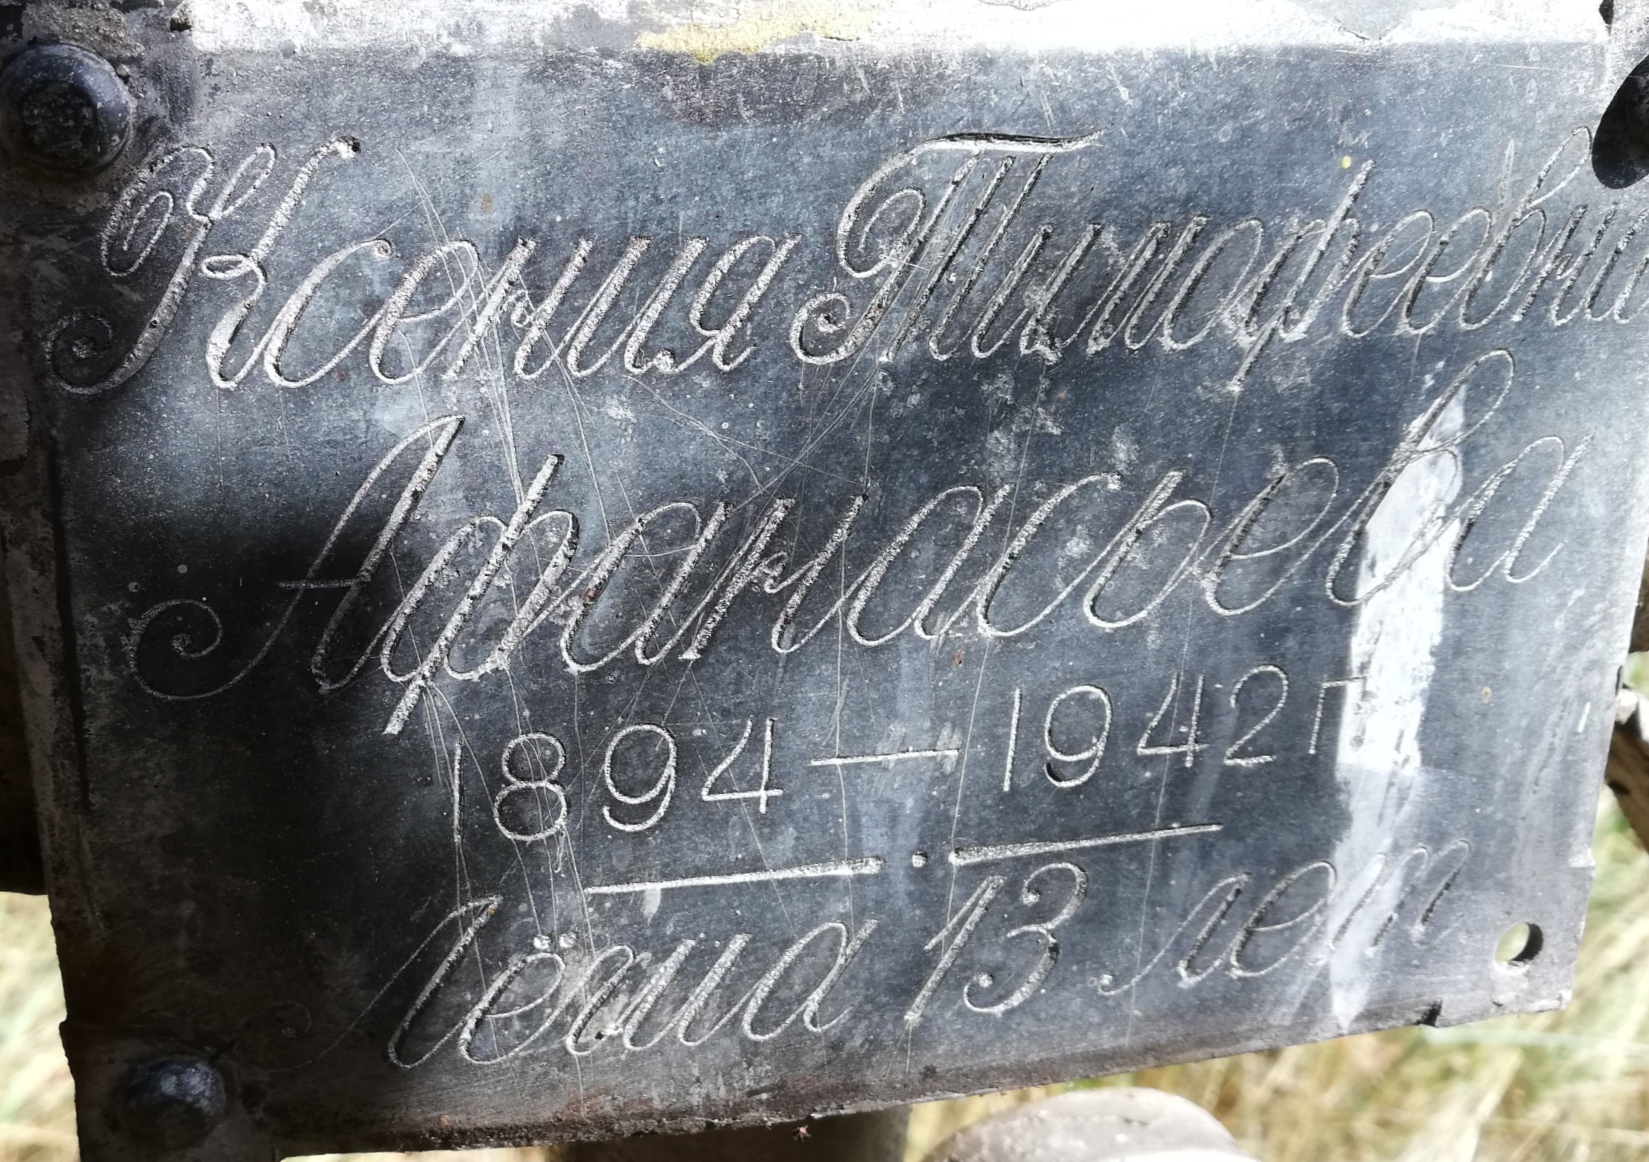 Ксения Тимофеевна
Афанасьева
1894 — 1942 г
Лёша 13 лет